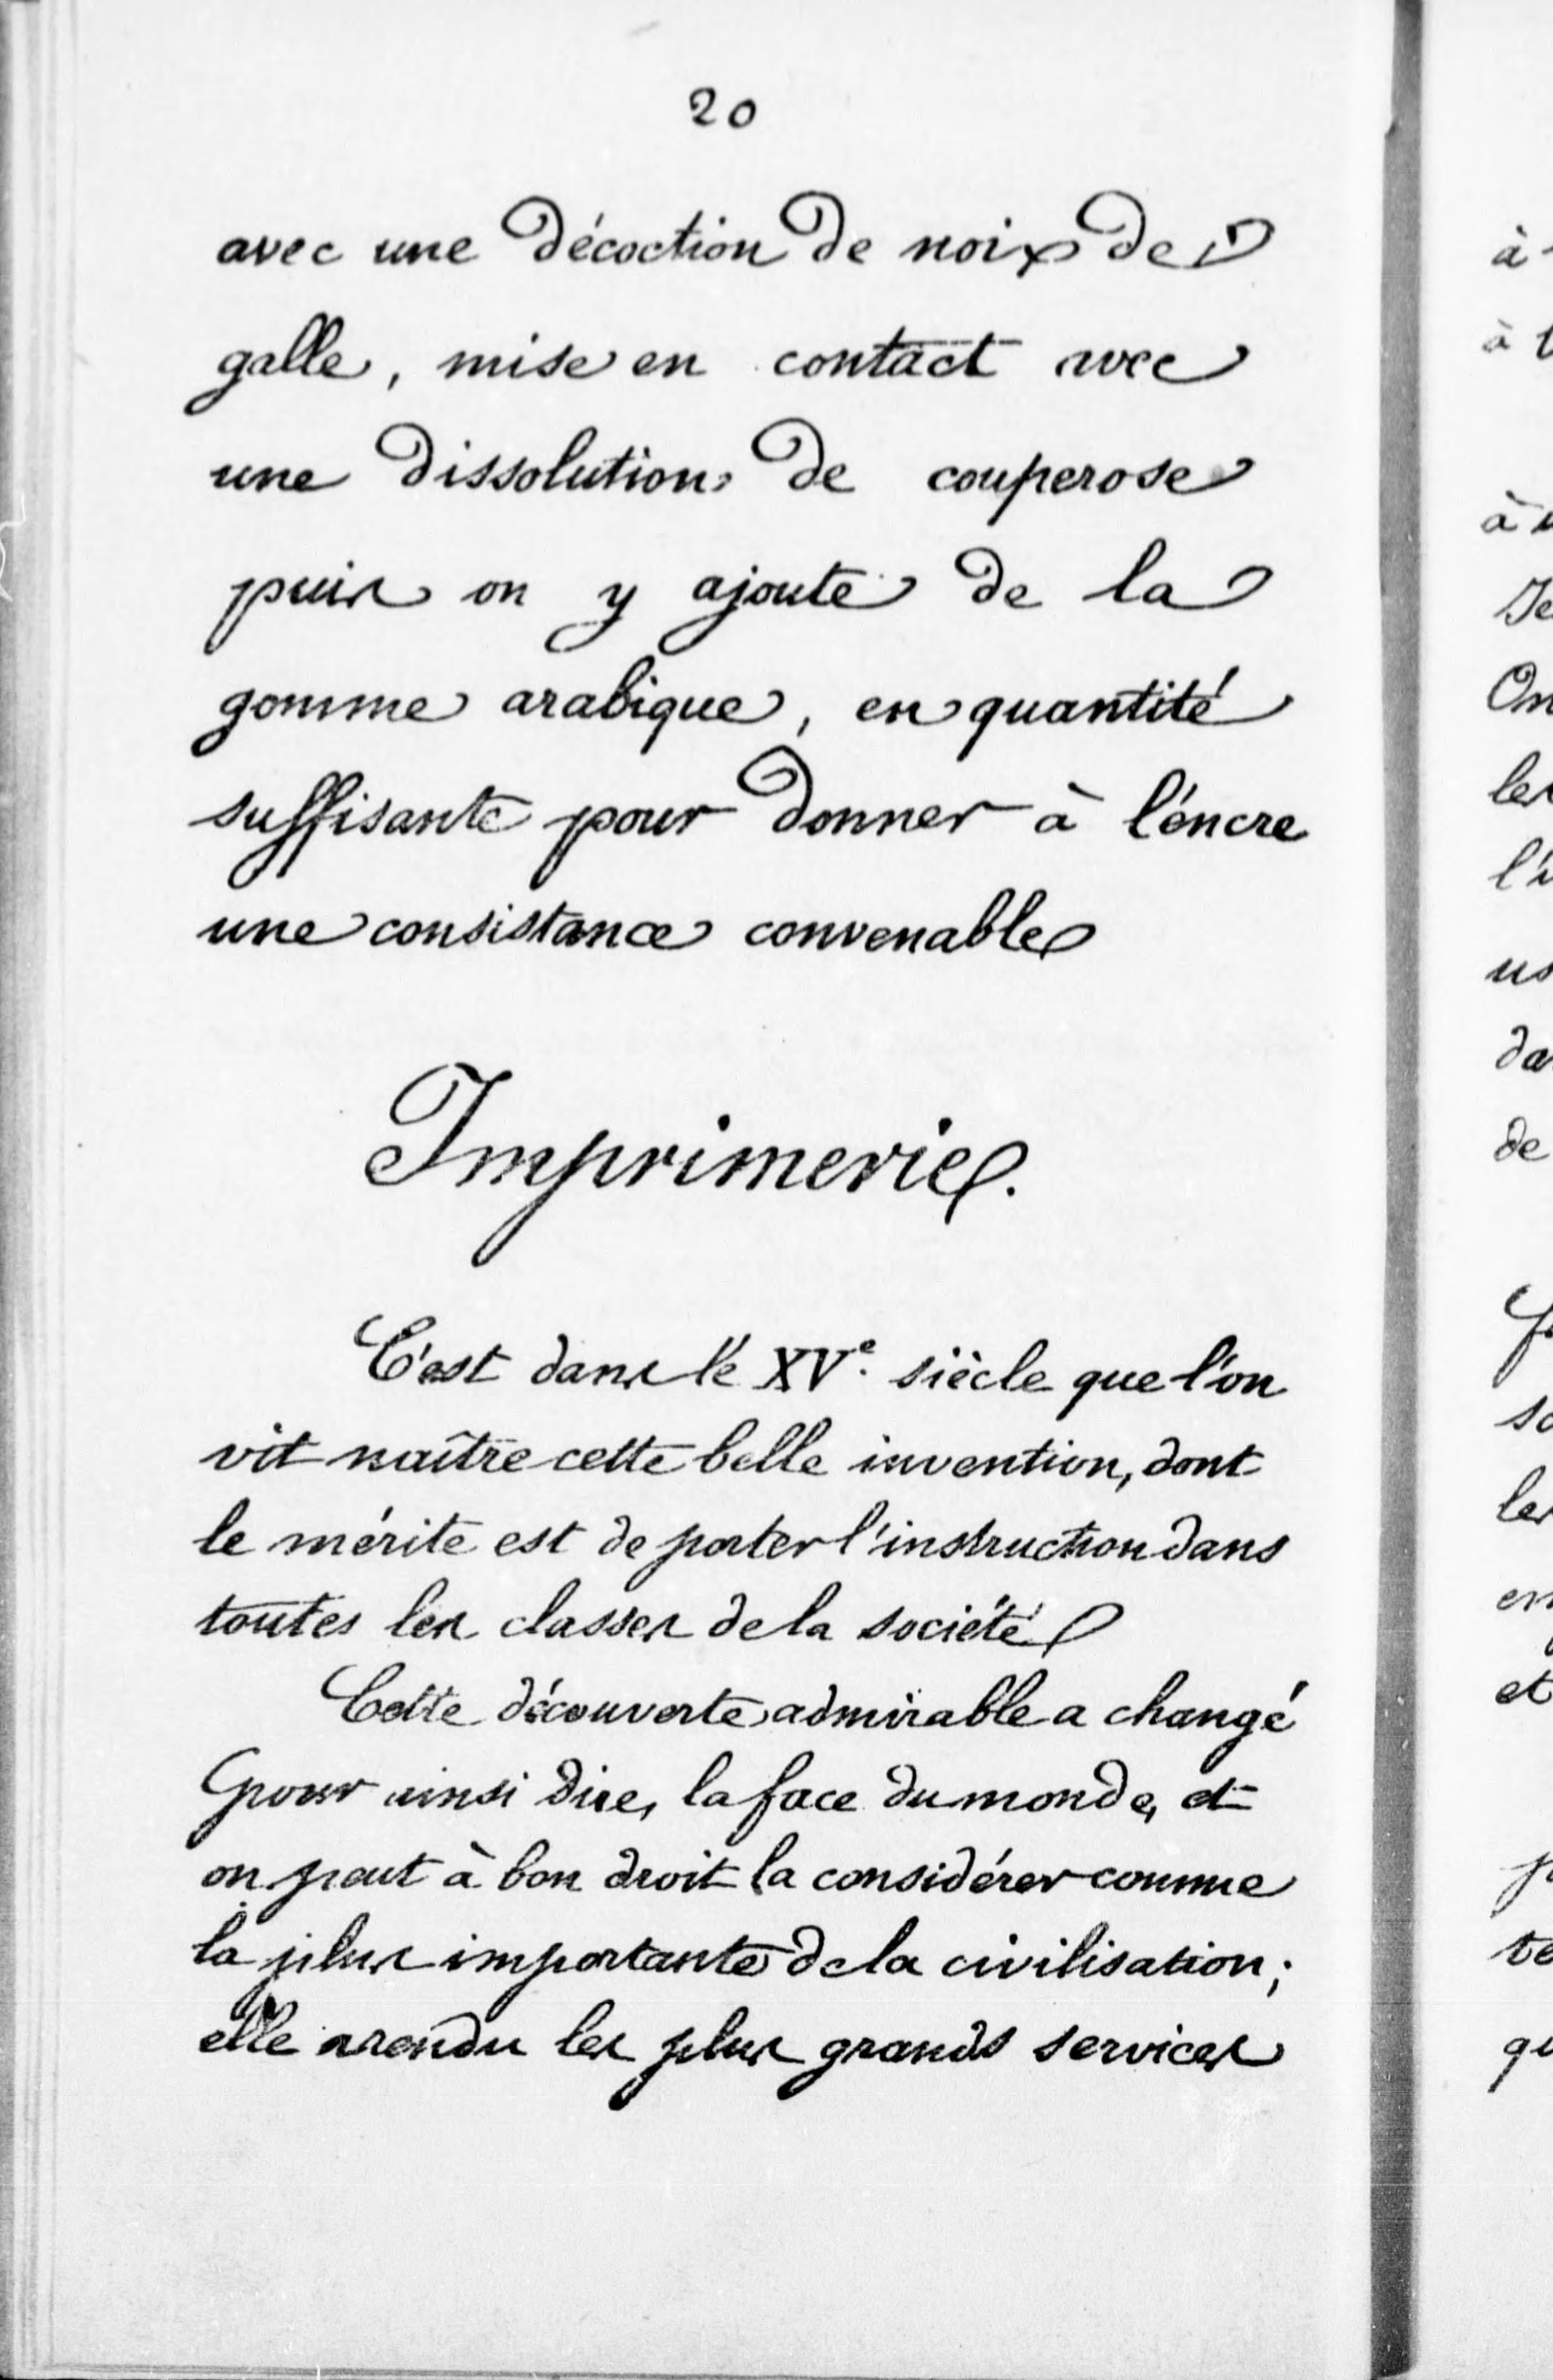 20
avec une décoction de noix de
galle, mise en contact avec
une dissolution de couperose
puis on y ajoute de la
gomme arabique, en quantité
suffisante pour donner à l'encre
une consistance convenable
Imprimerie.
C'est dans le XVe. siècle que l'on
vit naître cette belle invention, dont
le mérite est de porter l'instruction dans
toutes les classes de la société
Cette découverte admirable a changé
pour ainsi dire, la face du monde, et
on peut à bon droit la considérer comme
la plus importante de la civilisation;
elle a rendu les plus grands services